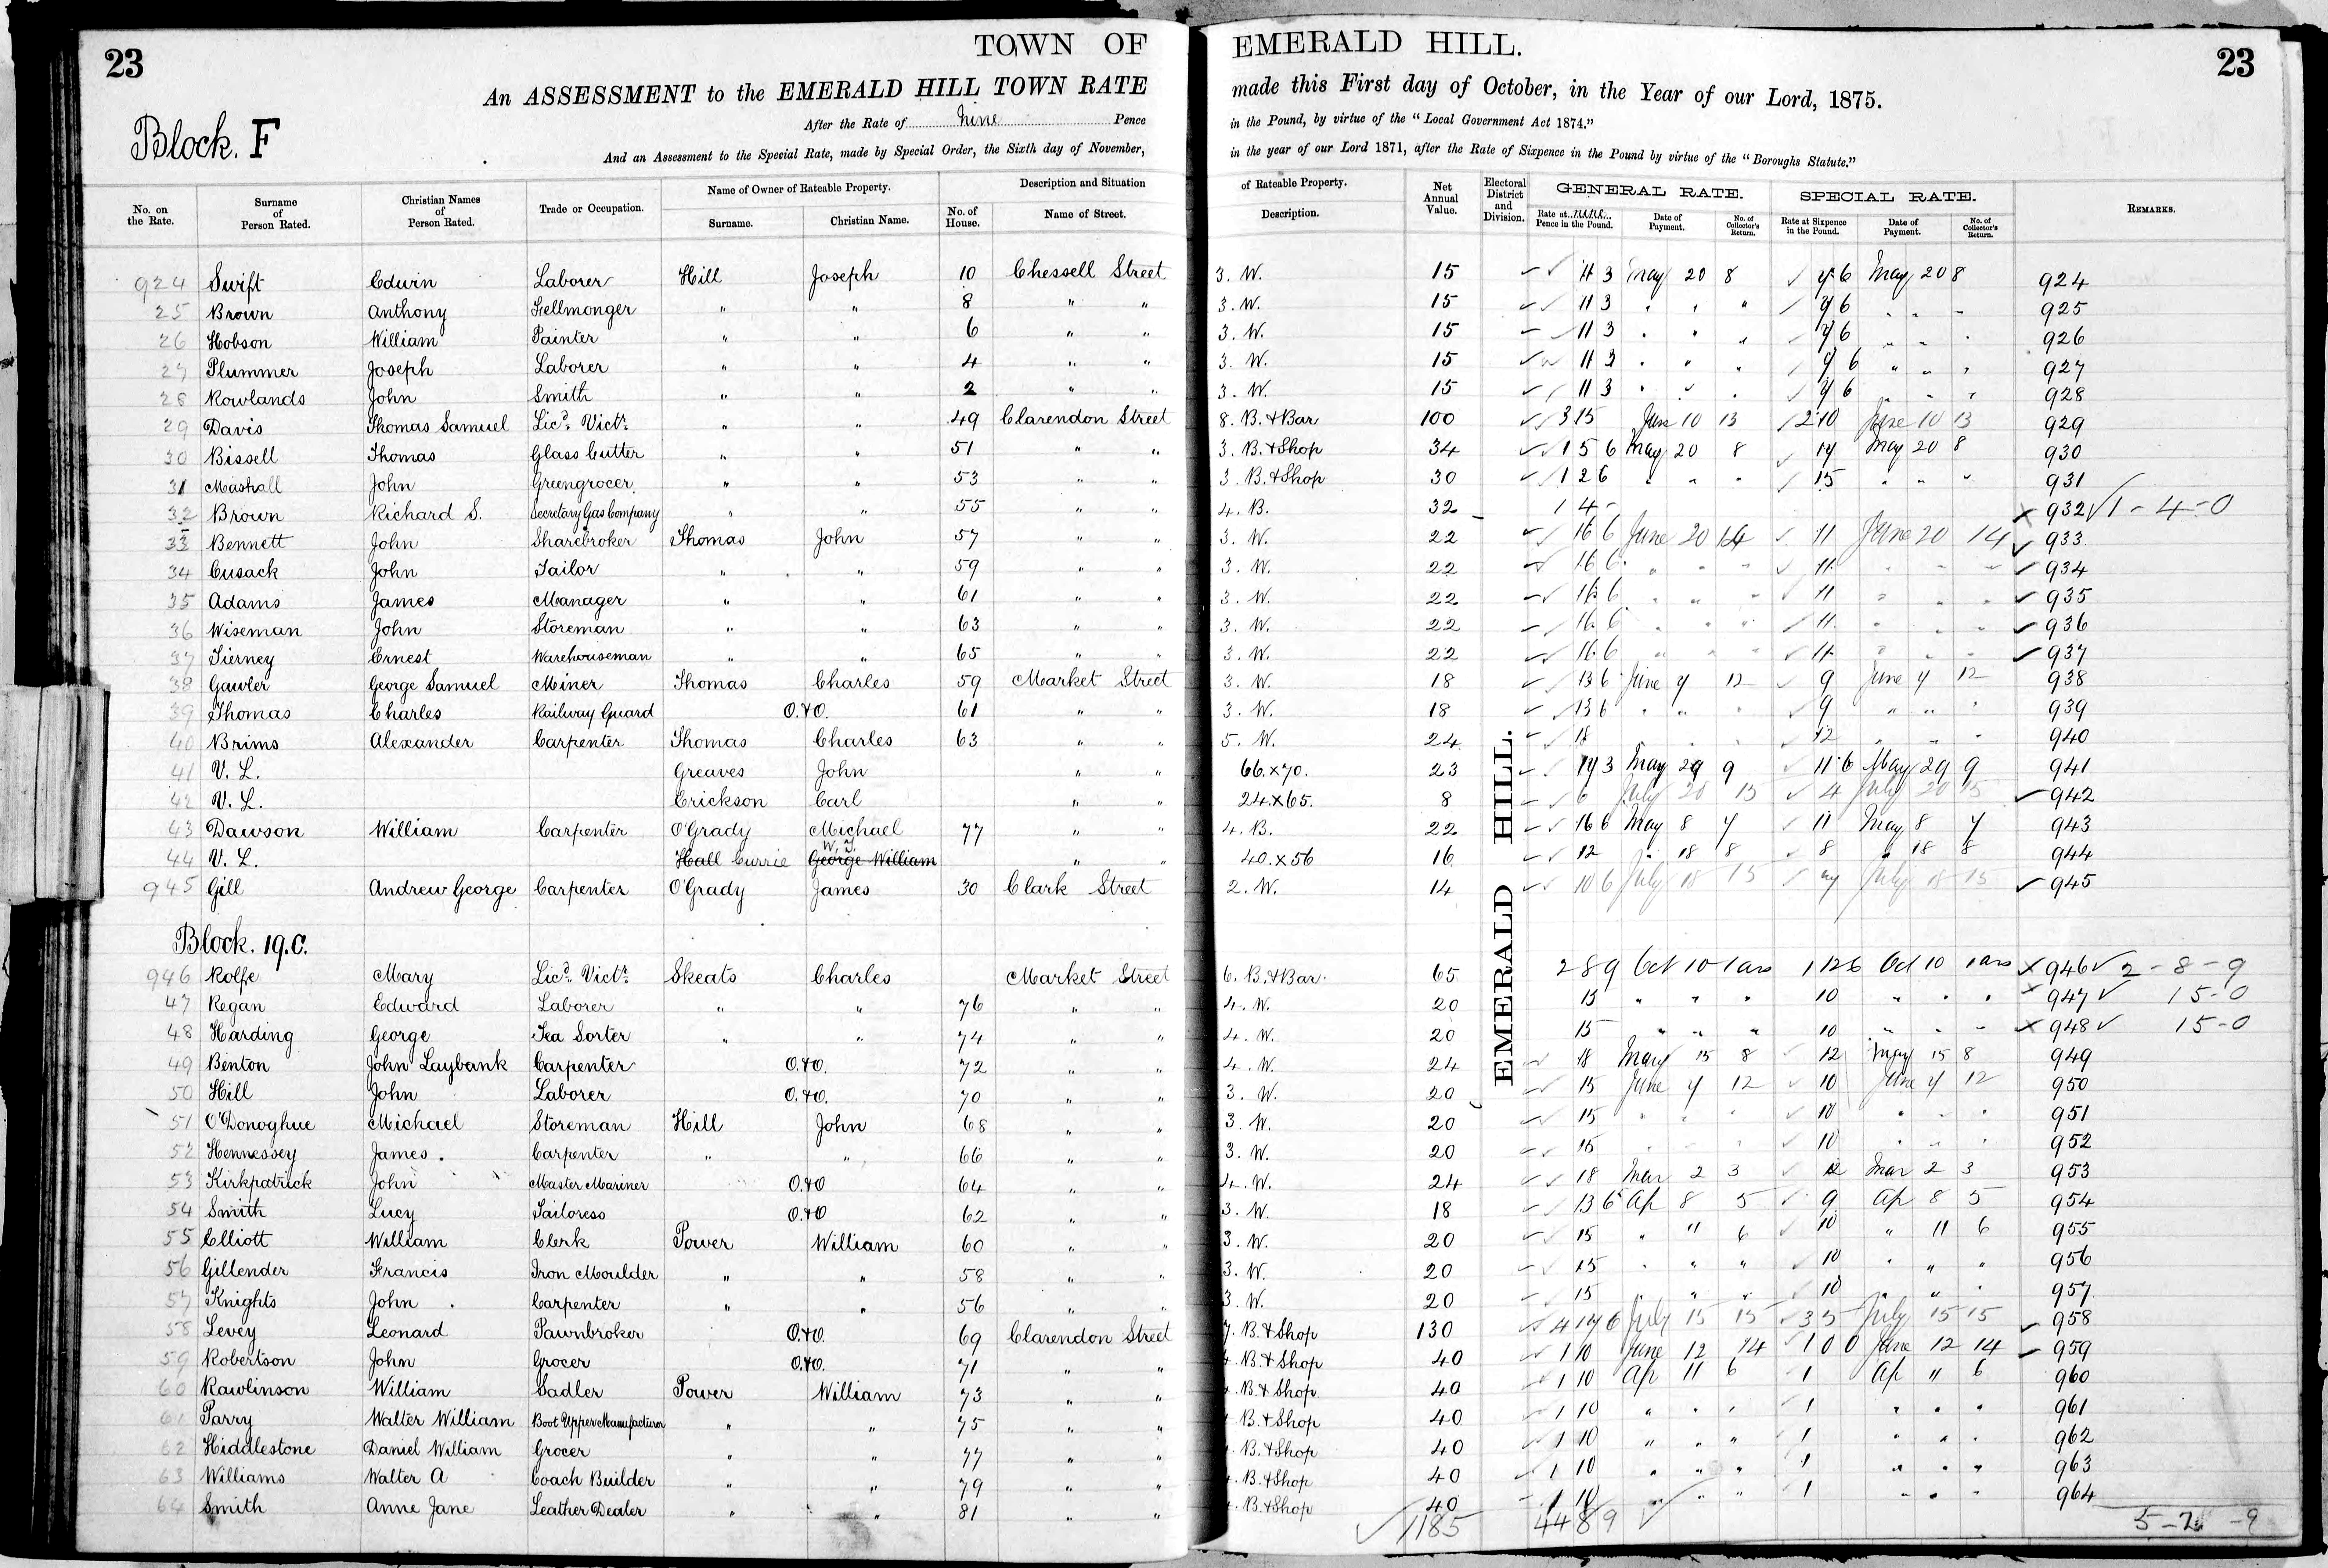 23 TOWN OF EMERALD HILL. 23
An ASSESSMENT to the EMERALD HILL TOWN RATE made this First day of October, in the Year of our Lord, 1875.
After the Rate of nine Pence in the Pound, by virtue of the "Local Government Act 1874."
Block. F
And an Assessment to the Special Rate, made by Special Order, the Sixth day of November, in the year of our Lord 1871, after the Rate of Sixpence in the Pound by virtue of the "Boroughs Statute."
No. on the Rate. Surname of Person Rated. Christian Names of Person Rated. Trade or Occupation. Name of Owner of Rateable Property. Surname. Christian Name. Description and Situation of Rateable Property. No. of House. Name of Street. Description. Net Annual Value. Electoral District and Division. GENERAL RATE. Rate at Pence in the Pound. Date of Payment. No. of Collector's Return. SPECIAL RATE. Rate at Sixpence in the Pound. Date of Payment. No. of Collector's Return. REMARKS.
924 Swift Edwin Laborer Hill Joseph 10 Chessell Street 3. W. 15 11 3 May 20 8 7 6 May 20 8 924
25 Brown Anthony Fellmonger " " 8 " " 3. W. 15 11 3 " " " 7 6 " " " 925
26 Hobson William Painter " " 6 " " 3. W. 15 11 3 " " " 7 6 " " " 926
27 Plummer Joseph Laborer " " 4 " " 3. W. 15 11 3 " " " 7 6 " " " 927
28 Rowlands John Smith " " 2 " " 3. W. 15 11 3 " " " 7 6 " " " 928
29 Davis Thomas Samuel Licd. Victr. " " 49 Clarendon Street 8. B. & Bar 100 3 15 June 10 13 2 10 June 10 13 929
30 Bissell Thomas Glass Cutter " " 51 " " 3. B. & Shop 34 1 5 6 May 20 8 17 May 20 8 930
31 Mashall John Greengrocer. " " 53 " " 3. B. & Shop 30 1 2 6 " " " 15 " " " 931
32 Brown Richard S. Secretary Gas Company " " 55 " " 4. B. 32 1 4 - x 932 √ 1 - 4 - 0
33 Bennett John Sharebroker Thomas John 57 " " 3. W. 22 16 6 June 20 14 11 June 20 14 933
34 Cusack John Tailor " " 59 " " 3. W. 22 16 6 " " " 11 " " " 934
35 Adams James Manager " " 61 " " 3. W. 22 16 6 " " " 11 " " " 935
36 Wiseman John Storeman " " 63 " " 3. W. 22 16 6 " " " 11 " " " 936
37 Tierney Ernest Warehouseman " " 65 " " 3. W. 22 16 6 " " " 11 " " " 937
38 Gawler George Samuel Miner Thomas Charles 59 Market Street 3. W. 18 13 6 June 7 12 9 June 7 12 938
39 Thomas Charles Railway Guard O. & O. 61 " " 3. W. 18 13 6 " " " 9 " " " 939
40 Brims Alexander Carpenter Thomas Charles 63 " " 5. W. 24 18 " " " 12 " " " 940
41 V. L. Greaves John " " 66. x 70. 23 17 3 May 29 9 11 6 May 29 9 941
42 V. L. Erickson Carl " " 24. x 65. 8 6 July 20 15 4 July 20 15 942
43 Dawson William Carpenter O'Grady Michael 77 " " 4. B. 22 16 6 May 8 7 11 May 8 7 943
44 V. L. Hall Currie George William W. J. " " 40. x 56 16 12 " 18 8 8 " 18 8 944
945 Gill Andrew George Carpenter O'Grady James 30 Clark Street 2. W. 14 10 6 July 18 15 7 July 18 15 945
EMERALD HILL.
Block. 19. C.
946 Rolfe Mary Licd. Victr. Skeats Charles Market Street 6. B. & Bar. 65 2 8 9 Oct 10 1 ars 1 12 6 Oct 10 1 ars x 946 √ 2 - 8 - 9
47 Regan Edward Laborer " " 76 " " 4. W. 20 15 " " " 10 " " " x 947 √ 15 - 0
48 Harding George Tea Sorter " " 74 " " 4. W. 20 15 " " " 10 " " " x 948 √ 15 - 0
49 Benton John Laybank Carpenter O. & O. 72 " " 4. W. 24 18 May 15 8 12 May 15 8 949
50 Hill John Laborer O. & O. 70 " " 3. W. 20 15 June 7 12 10 June 7 12 950
51 O'Donoghue Michael Storeman Hill John 68 " " 3. W. 20 15 " " " 10 " " " 951
52 Hennessey James. Carpenter " " 66 " " 3. W. 20 15 " " " 10 " " " 952
53 Kirkpatrick John Master Mariner O. & O 64 " " 4. W. 24 18 Mar 2 3 12 Mar 2 3 953
54 Smith Lucy Tailoress O. & O 62 " " 3. W. 18 13 6 Ap 8 5 9 Ap 8 5 954
55 Elliott William Clerk Power William 60 " " 3. W. 20 15 " 11 6 10 " 11 6 955
56 Gillender Francis Iron Moulder " " 58 " " 3. W. 20 15 " " " 10 " " " 956
57 Knights John Carpenter " " 56 " " 3. W. 20 15 " " " 10 " " " 957
58 Levey Leonard Pawnbroker O. & O. 69 Clarendon Street 7. B. & Shop 130 4 17 6 July 15 15 3 5 July 15 15 958
59 Robertson John Grocer O. & O. 71 " " B. & Shop 40 1 10 June 12 14 1 0 0 June 12 14 959
60 Rawlinson William Sadler Power William 73 " " B. & Shop 40 1 10 Ap 11 6 1 Ap 11 6 960
61 Parry Walter William Boot Upper Manufacturer " " 75 " " B. & Shop 40 1 10 " " " 1 " " " 961
62 Hiddlestone Daniel William Grocer " " 77 " " B. & Shop 40 1 10 " " " 1 " " " 962
63 Williams Walter A Coach Builder " " 79 " " B. & Shop 40 1 10 " " " 1 " " " 963
64 Smith Anne Jane Leather Dealer " " 81 " " B. & Shop 40 1 10 " " " 1 " " " 964
1185 44 8 9